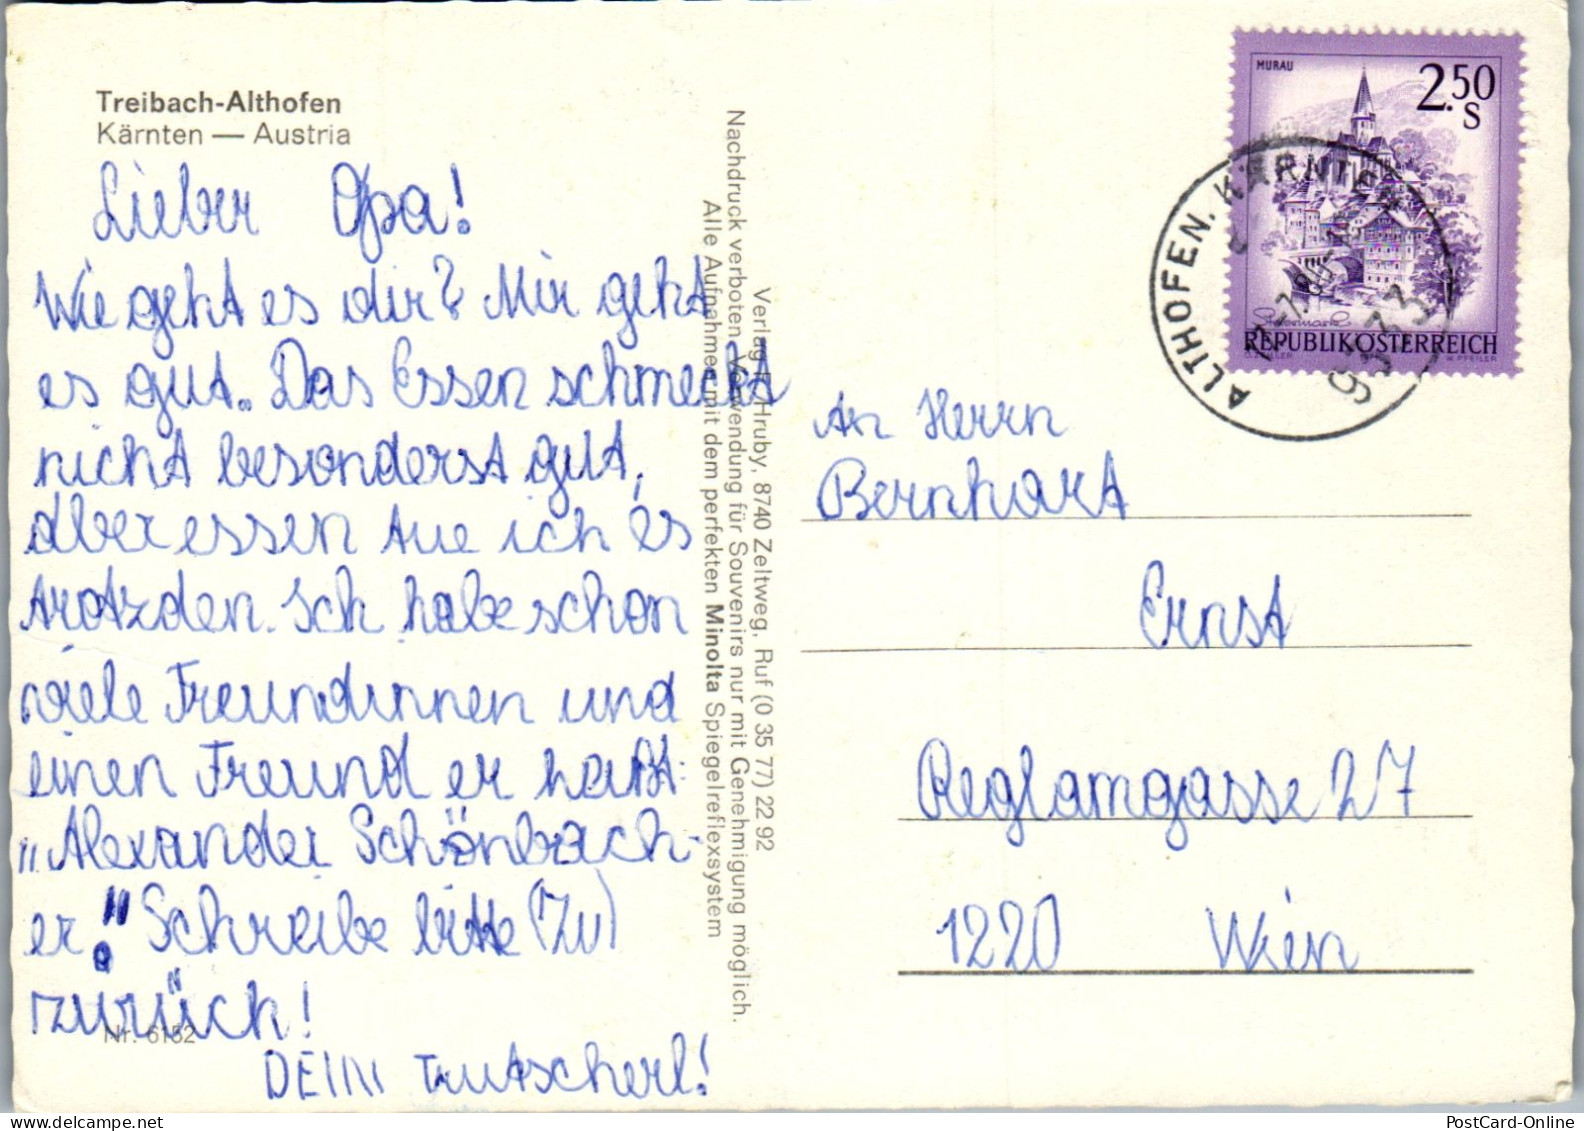 Treibach-Althofen
Kärnten — Austria
Lieber Opa!
Wie geht es dir? Mir geht
es gut. Das Essen schmeckt
nicht besonderst gut,
aber essen tue ich es
trotzden. Ich habe schon
viele Freundinnen und
einen Freund er haißt:
"Alexander Schönbach-
er." Schreibe bitte (zu)
zurück!
DEIN Trutscherl!
Nr. 6152
Verlag F. Hruby, 8740 Zeltweg, Ruf (0 35 77) 22 92
Nachdruck verboten. Verwendung für Souvenirs nur mit Genehmigung möglich.
Alle Aufnahmen mit dem perfekten Minolta Spiegelreflexsystem
MURAU
2.50
S
Steiermark
REPUBLIK ÖSTERREICH
W. PFEILER
ALTHOFEN, KÄRNTEN
9333
An Herrn
Bernhart
Ernst
Reglamgasse 27
1220 Wien
PostCard-Online